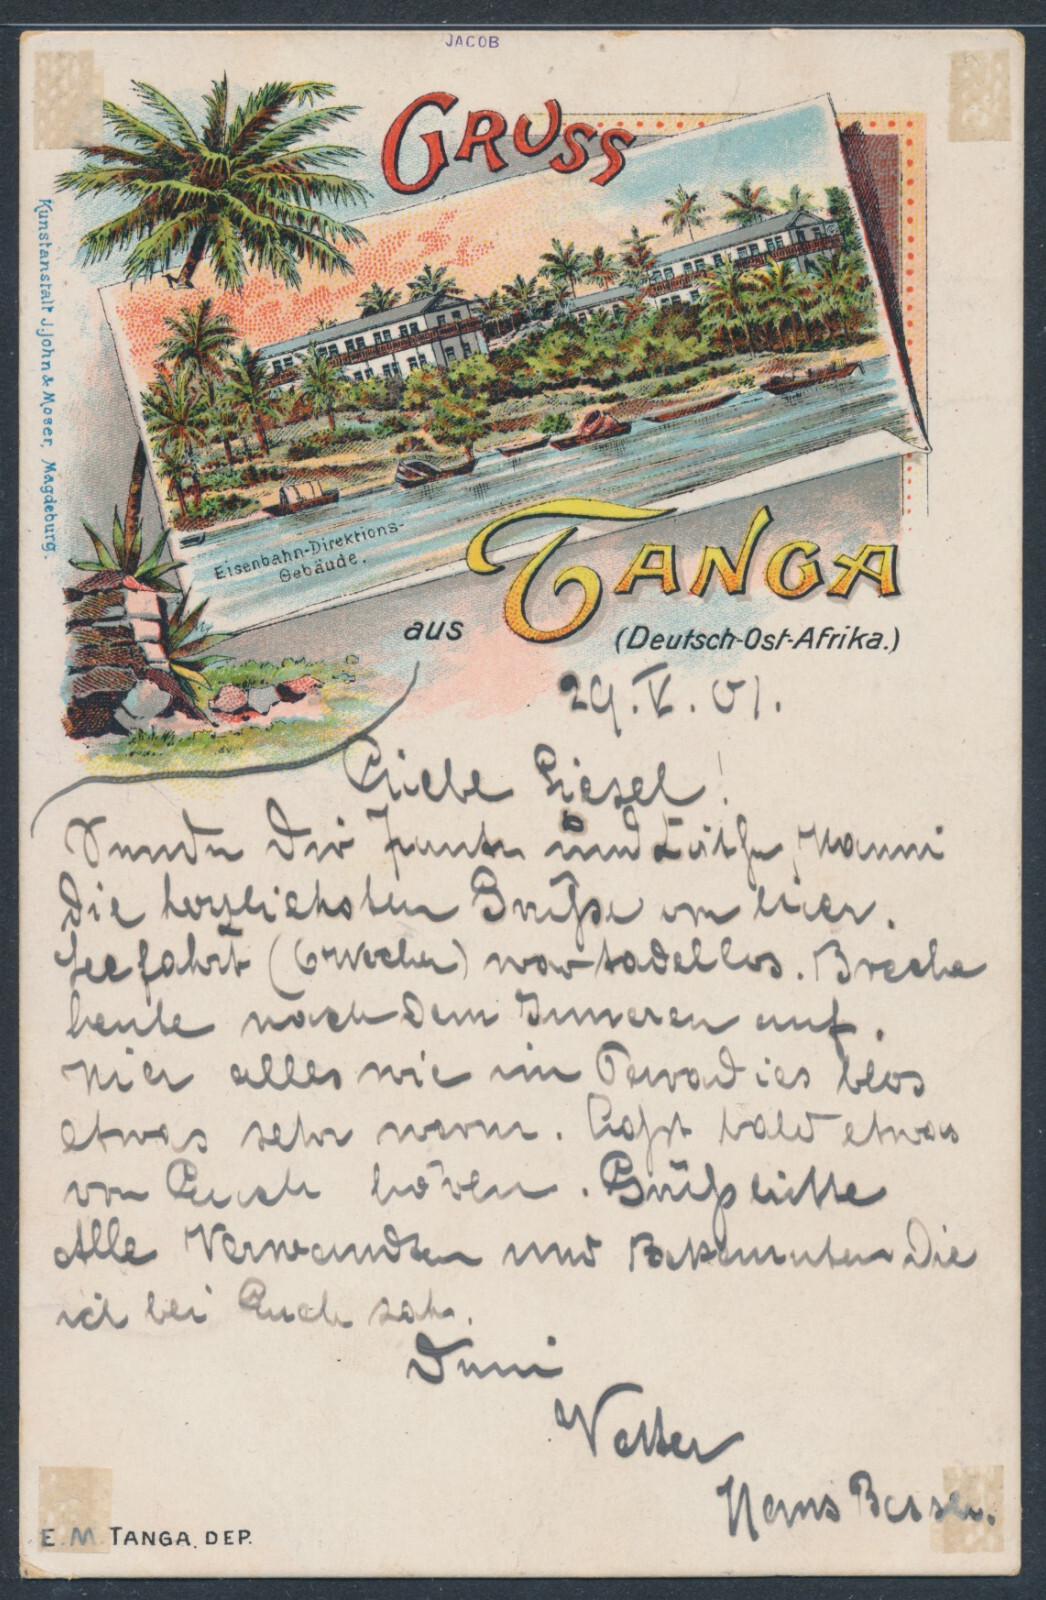 JACOB
GRUSS
Kunstanstalt J. John & Moser, Magdeburg.
Eisenbahn-Direktions-
Gebäude.
aus TANGA
(Deutsch-Ost-Afrika.)
29.V.01.
Liebe Liesel!
Sende Dir, Tante und Nanni
die herzlichsten Grüße von hier.
Seefahrt (6 Wochen) war tadellos. Breche
heute nach dem Inneren auf.
Hier alles wie im Paradies blos
etwas sehr warm. Laßt bald etwas
von Euch hören. Grüß bitte
Alle Verwandten und Bekannten die
ich bei Euch sah.
Dein
Vetter
Hans Besser.
E. M. TANGA, DEP.